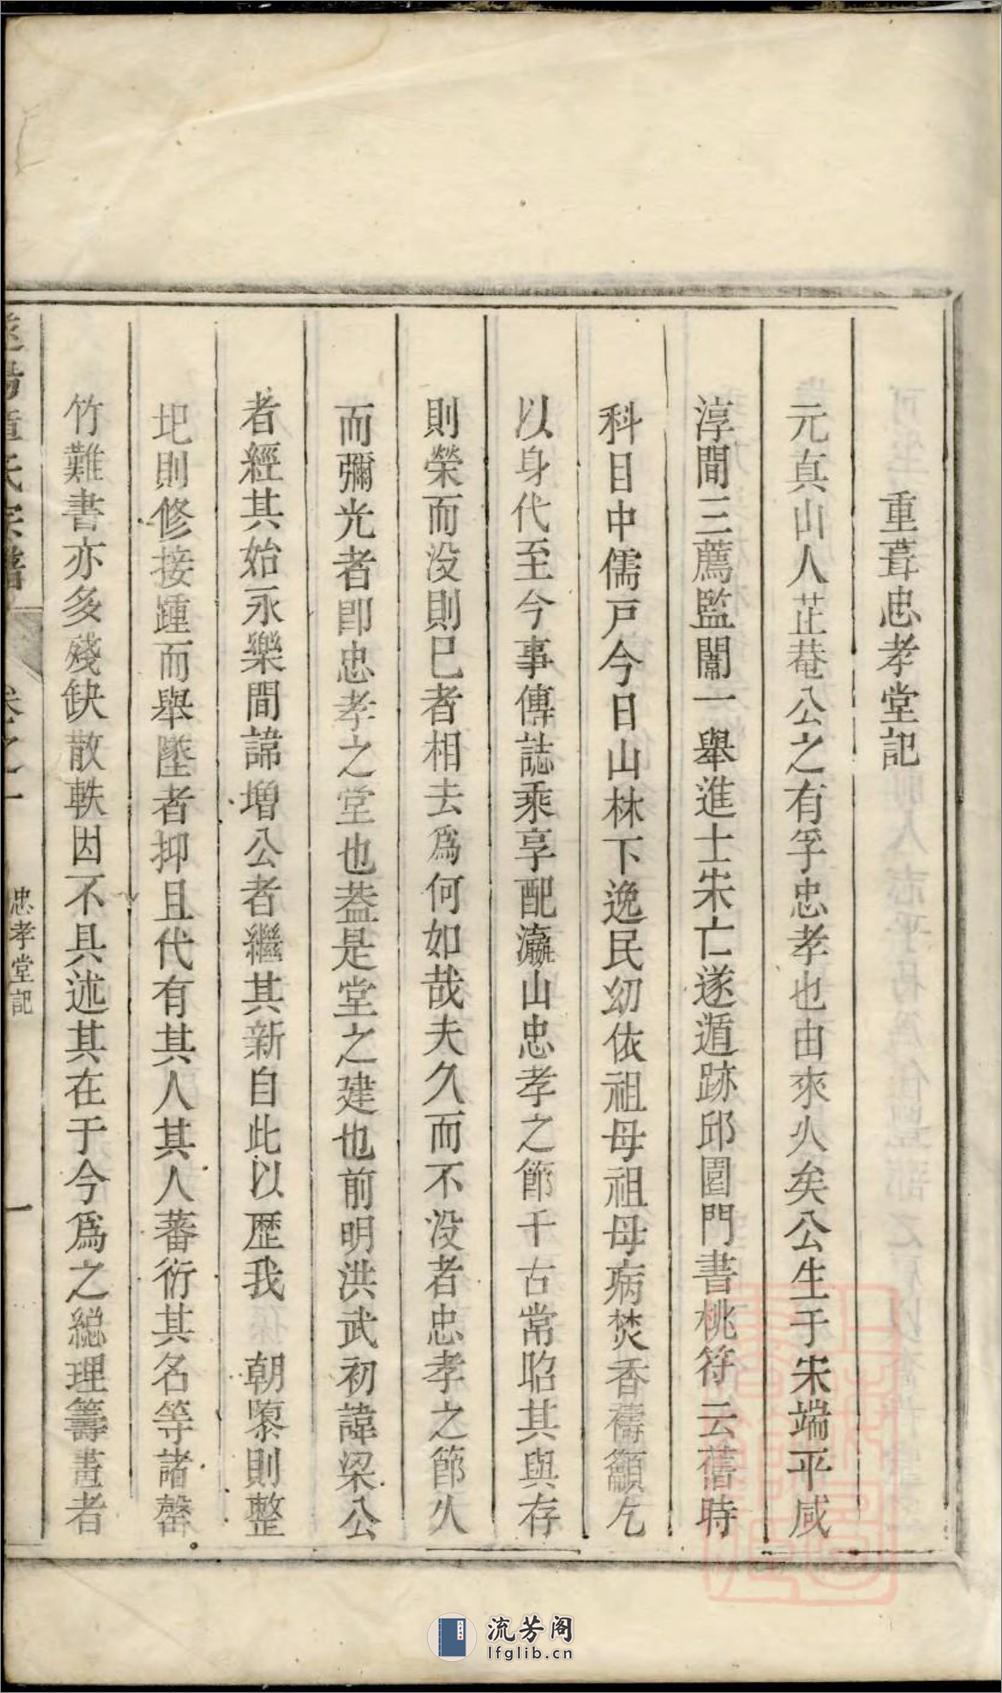 重葺忠孝堂記
元真山人芷菴公之有孚忠孝也由來乆矣公生于宋端平咸
淳間三薦監闈一舉進士宋亡遂遁跡邱園門書桃符云舊時
科目中儒戸今日山林下逸民㓜依祖母祖母病焚香禱籲乞
以身代至今事傳誌乘享配瀛山忠孝之節千古常昭其與存
則榮而没則已者相去爲何如哉夫久而不没者忠孝之節乆
而彌光者卽忠孝之堂也葢是堂之建也前明洪武初諱梁公
者經其始永樂間諱增公者繼其新自此以歷我　朝隳則整
圯則修接踵而舉墜者抑且代有其人其人蕃衍其名等諸罄
竹難書亦多殘缺散軼因不具述其在于今爲之總理籌畫者
氏宗譜
卷之一
忠孝堂記
一
流芳阁
lfglib.cn